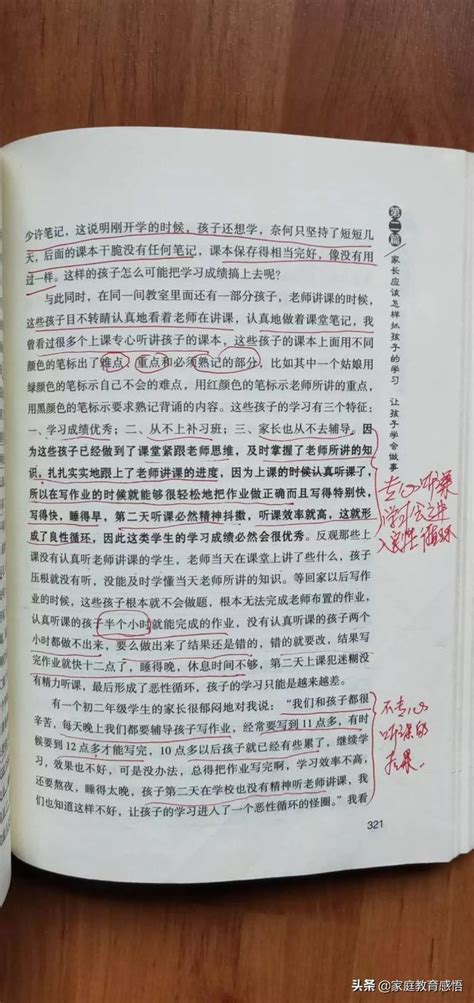 少许笔记，这说明刚开学的时候，孩子还想学，奈何只坚持了短短几
天，后面的课本干脆没有任何笔记，课本保存得相当完好，像没有用
过一样。这样的孩子怎么可能把学习成绩搞上去呢？
与此同时，在同一间教室里面还有一部分孩子，老师讲课的时候，
这些孩子目不转睛认真地看着老师在讲课，认真地做着课堂笔记，我
曾看过很多个上课专心听讲孩子的课本，这些孩子的课本上面用不同
颜色的笔标出了难点、重点和必须熟记的部分，比如其中一个姑娘用
绿颜色的笔标示自己不会的难点，用红颜色的笔标示老师所讲的重点，
用黑颜色的笔标示要求熟记背诵的内容。这些孩子的学习有三个特征：
一、学习成绩优秀；二、从不上补习班；三、家长也从不去辅导。因
为这些孩子已经做到了课堂紧跟老师思维，及时掌握了老师所讲的知
识，扎扎实实地跟上了老师讲课的进度，因为上课的时候认真听课了，
所以在写作业的时候就能够很轻松地把作业做正确而且写得特别快，
写得快，睡得早，第二天听课必然精神抖擞，听课效率就高，这就形
成了良性循环，因此这类学生的学习成绩必然会很优秀。反观那些上
课没有认真听老师讲课的学生，老师当天在课堂上讲了些什么，孩子
压根就没有听，没能及时学懂当天老师所讲的知识。等回家以后写作
业的时候，这些孩子根本就不会做题，根本无法完成老师布置的作业，
认真听课的孩子半个小时就能完成的作业，没有认真听课的孩子两个
小时都做不出来，要么做出来了结果还是错的，错的就要改，结果写
完作业就快十二点了，睡得晚，休息时间不够，第二天上课犯迷糊没
有精力听课，最后形成了恶性循环，孩子的学习只能是越来越差。
有一个初二年级学生的家长很郁闷地对我说：“我们和孩子都很
辛苦，每天晚上我们都要辅导孩子写作业，经常要写到11点多，有时
候要到12点多才能写完，10点多以后孩子就已经有些累了，继续学
习，效果也不好，可是没办法，总得把作业写完啊，学习效率不高，
还要熬夜，睡得太晚，孩子第二天在学校也没有精神听老师讲课，我
们也知道这样不好，让孩子的学习进入了一个恶性循环的怪圈。”我看
321
第二篇
家长应该怎样抓孩子的学习 让孩子学会做事
专心听课
学习会之中
入良性循环
不专心
听课的
后果
头条 @家庭教育感悟